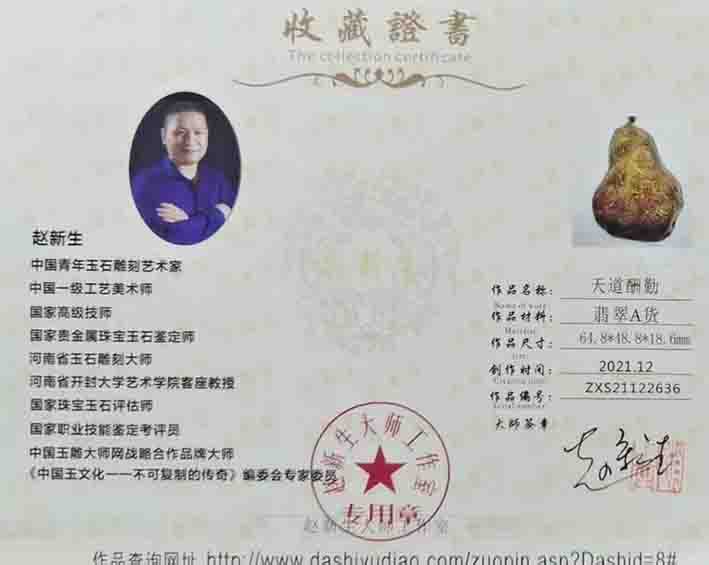 收藏證書
The collection certificate
赵新生
中国青年玉石雕刻艺术家
中国一级工艺美术师
国家高级技师
国家贵金属珠宝玉石鉴定师
河南省玉石雕刻大师
河南省开封大学艺术学院客座教授
国家珠宝玉石评估师
国家职业技能鉴定考评员
中国玉雕大师网战略合作品牌大师
《中国玉文化一一不可复制的传奇》编委会专家委员
作品名称: 天道酬勤
Name of work:
作品材料: 翡翠A货
Material:
作品尺寸: 64.8*48.8*18.6mm
创作时间: 2021.12
Creation time:
作品编号: ZXS21122636
Serial number:
大师签章:
赵新生大师工作室
专用章
赵新生大师工作室
作品查询网址 http://www.dashiyudiao.com/zuopin.asp?Dashid=8#